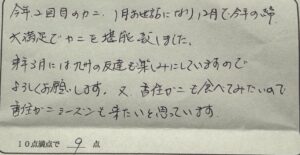 今年2回目のカニ、1月お世話になり12月で今年の締
大満足でカニを堪能致しました。
来年3月には九州の友達も楽しみにしていますので
よろしくお願いします。又、香住がニも食べてみたいので
香住がニシーズンも来たいと思っています。
10点満点で 9 点